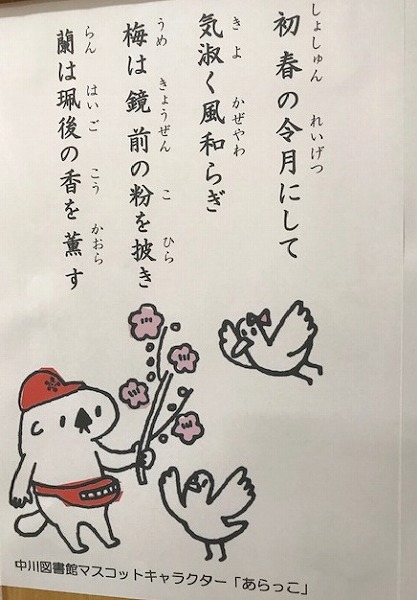 しょしゅん れいげつ
初春の令月にして
きよ かぜやわ
気淑く風和らぎ
うめ きょうぜん こ ひら
梅は鏡前の粉を披き
らん はいご こう かおら
蘭は珮後の香を薫す
中川図書館マスコットキャラクター「あらっこ」